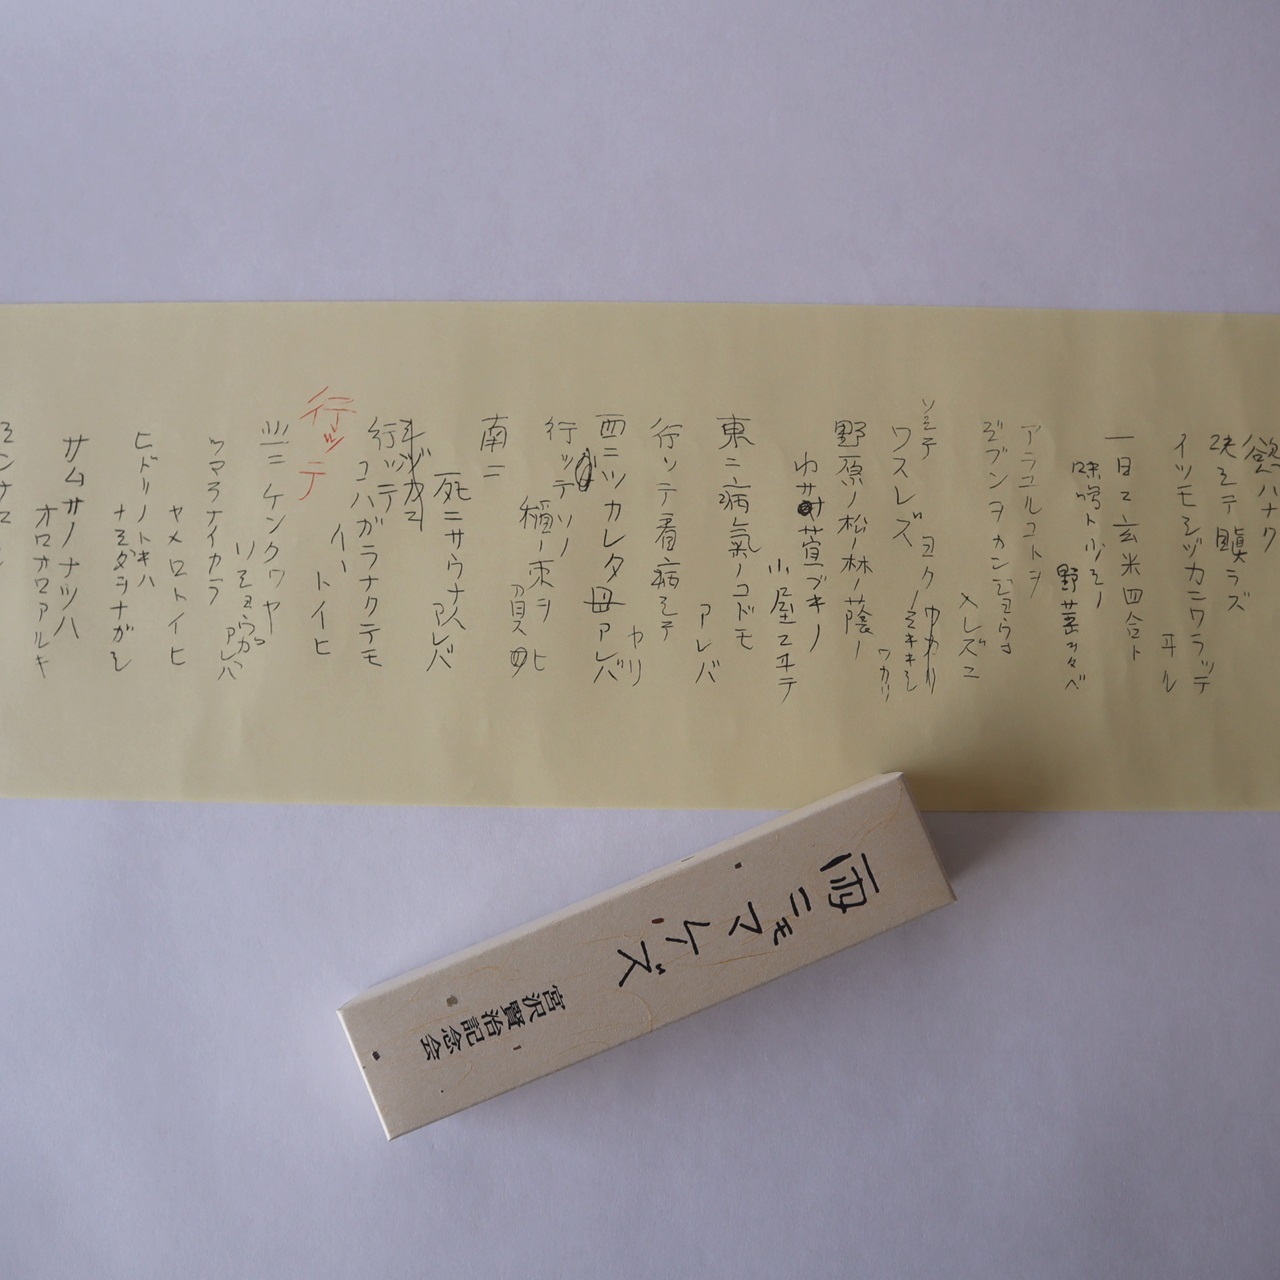 慾ハナク
決シテ瞋ラズ
イツモシヅカニワラッテ
ヰル
一日ニ玄米四合ト
味噌ト少シノ
野菜ヲタベ
アラユルコトヲ
ジブンヲカンジョウニ
入レズニ
ヨクミキキシ
ワカリ
ソシテ
ワスレズ
野原ノ松ノ林ノ蔭ノ
小サナ萓ブキノ
小屋ニヰテ
東ニ病氣ノコドモ
アレバ
行ッテ看病シテ
ヤリ
西ニツカレタ母アレバ
行ッテソノ
稲ノ束ヲ
負ヒ
南ニ
死ニサウナ人
アレバ
行ッテ
コハガラナクテモ
イヽ
トイヒ
行ッテ
北ニケンクヮヤ
ソショウガ
アレバ
ツマラナイカラ
ヤメロトイヒ
ヒドリノトキハ
ナミダヲナガシ
サムサノナツハ
オロオロアルキ
雨ニモマケズ
宮沢賢治記念会